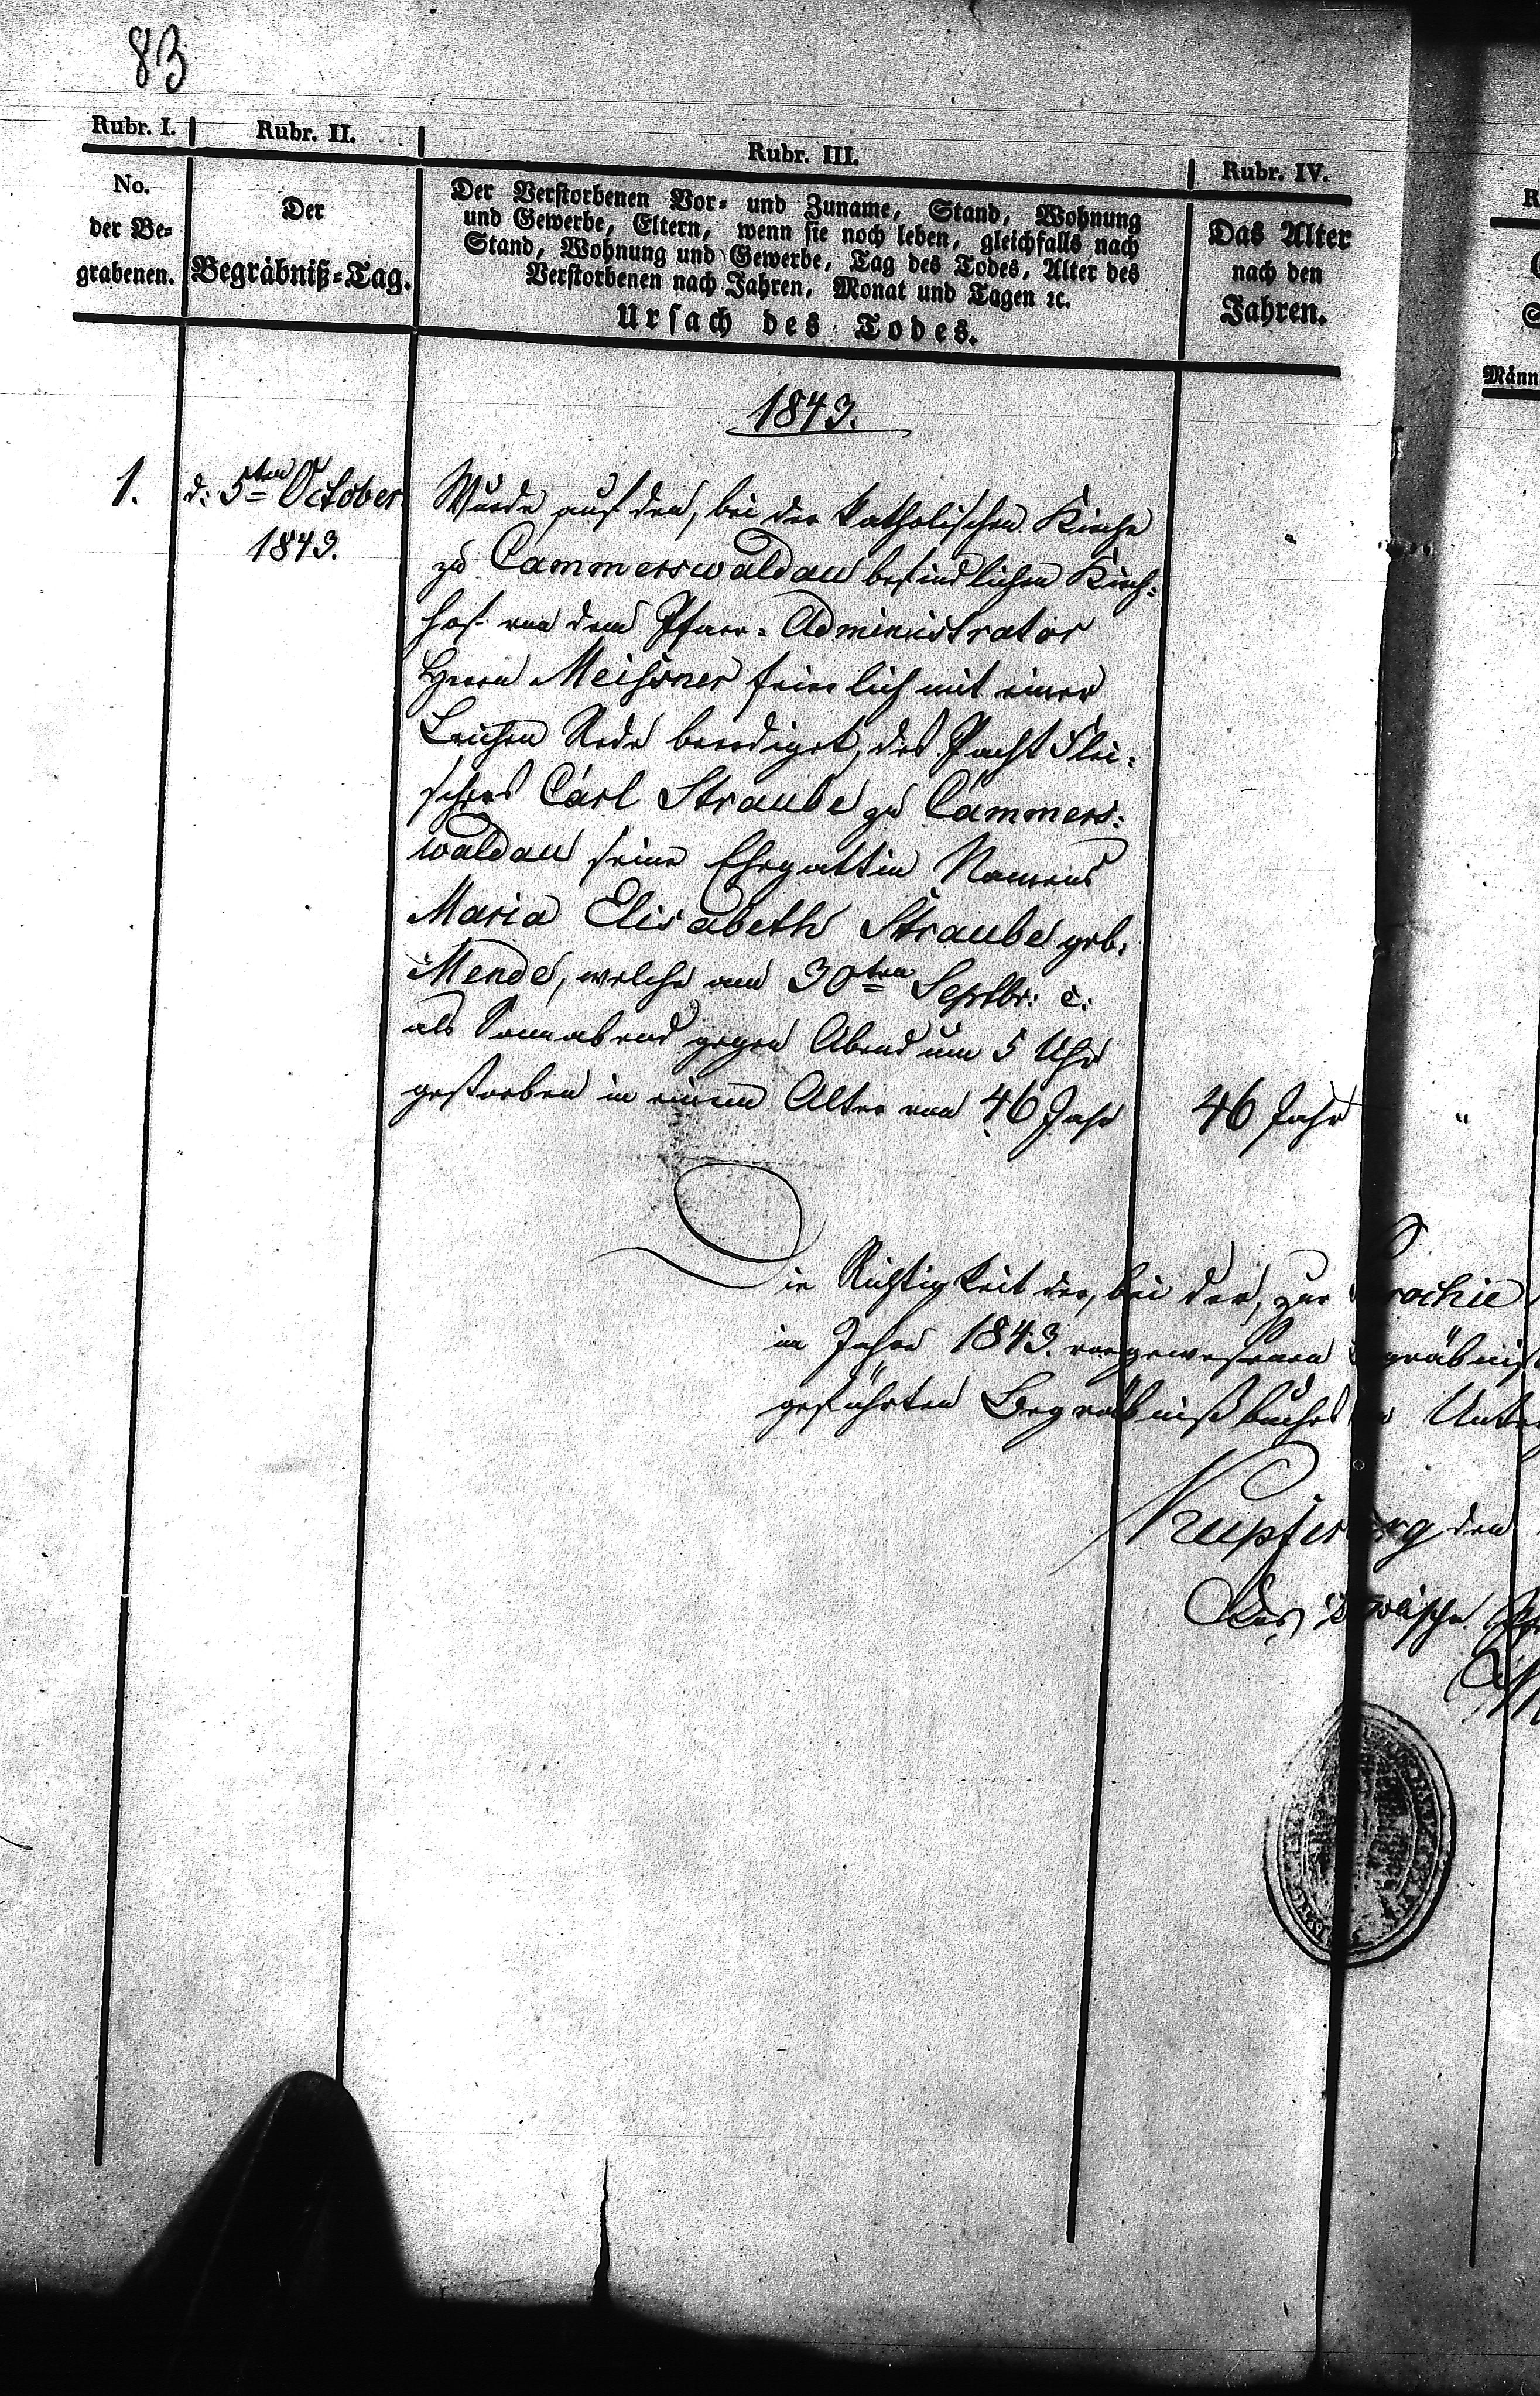 83
Rubr. I. Rubr. II. Rubr. III. Rubr. IV.
No.
der Be-
grabenen.
Der
Begräbniß-Tag.
Der Verstorbenen Vor- und Zuname, Stand, Wohnung
und Gewerbe, Eltern, wenn sie noch leben, gleichfalls nach
Stand, Wohnung und Gewerbe, Tag des Todes, Alter des
Verstorbenen nach Jahren, Monat und Tagen ꝛc.
Ursach des Todes.
Das Alter
nach den
Jahren.
Männ
1843.
1.
d: 5ten October
1843.
Wurde auf den, bei der katholischen Kirche
zu Cammerswaldau befindlichen Kirch-
hof von dem Pfarr-Administrator
Herrn Meissner feierlich mit einer
Leichen Rede beerdiget, des Pacht Flei-
schers Carl Straube zu Cammers-
waldau seine Ehegattin Namens
Maria Elisabeth Straube geb:
Mende, welche am 30ten Septbr: c:
als Sonnabend gegen Abend um 5 Uhr
gestorben in einem Alter von 46 Jahr
46 Jahr
"
Die Richtigkeit der, bei der, zur Parochie
im Jahre 1843. vorgewesenen Begräbniß
geführten Begräbnißbuches
Kupferberg den
Das katholische